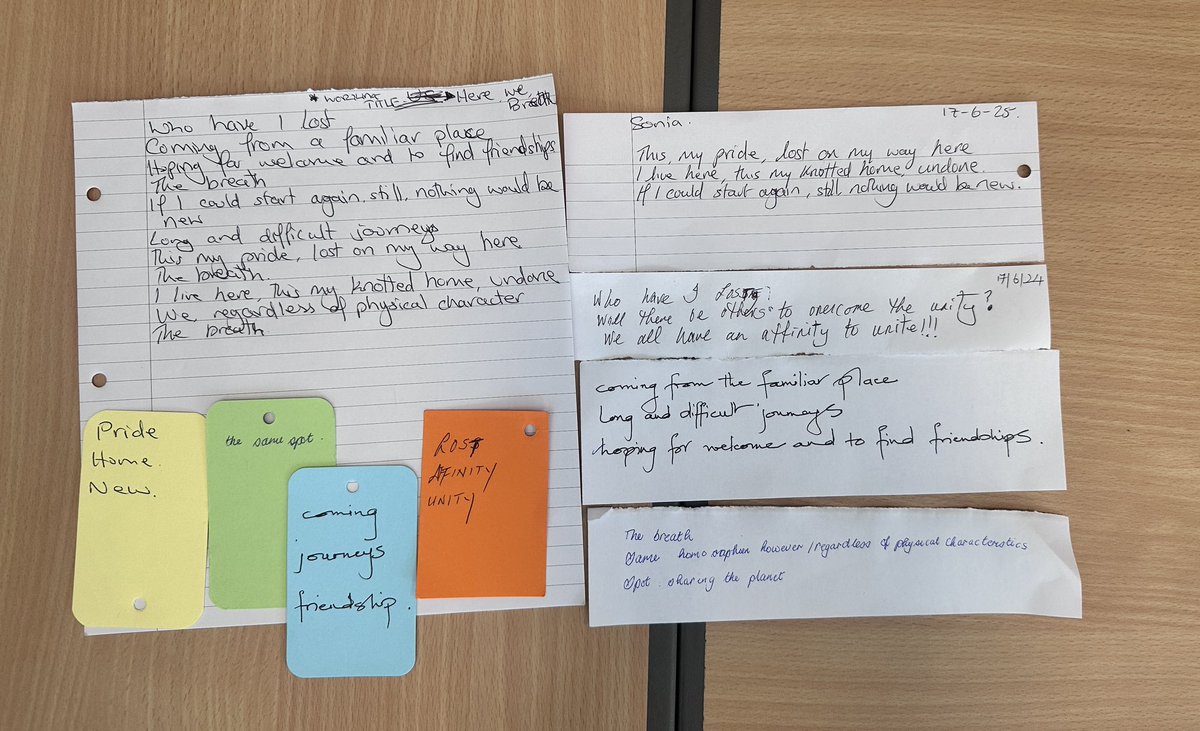 * WORKING TITLE → Here we Breath
Who have I lost
Coming from a familiar place
Hoping for welcome and to find friendships
The breath
If I could start again, still, nothing would be
new
Long and difficult journeys
This my pride, lost on my way here
The breath.
I live here, This my knotted home, undone
We regardless of physical character
The breath
Pride
Home.
New.
the same spot.
coming
journeys
friendship.
LOST
AFINITY
UNITY
Sonia.
17-6-25.
This, my pride, lost on my way here
I live here, this my knotted home, undone.
If I could start again, still, nothing would be new.
17/6/24
Who have I Lost?
Will there be others to overcome the unity?
We all have an affinity to unite!!!
coming from the familiar place
Long and difficult journeys
hoping for welcome and to find friendships.
The breath
Same homo however / regardless of physical characteristics
Spot. sharing the planet